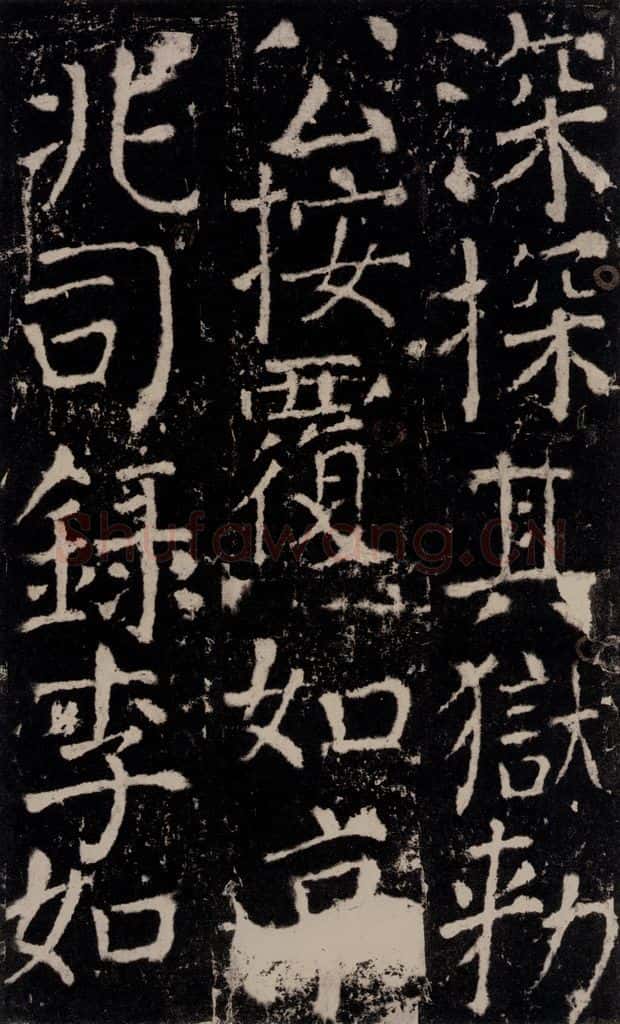 深探其獄勑
公按覆如京
兆司錄李如
Shufawang.CN